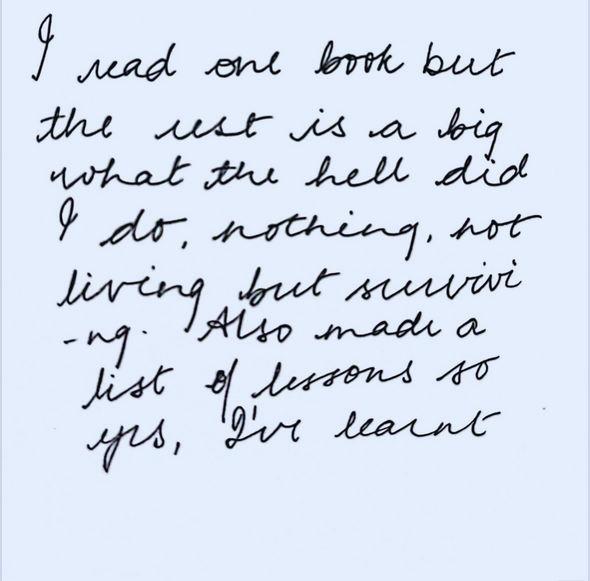 I read one book but
the rest is a big
what the hell did
I do, nothing, not
living but survivi
-ng. Also made a
list of lessons so
yes, I've learnt